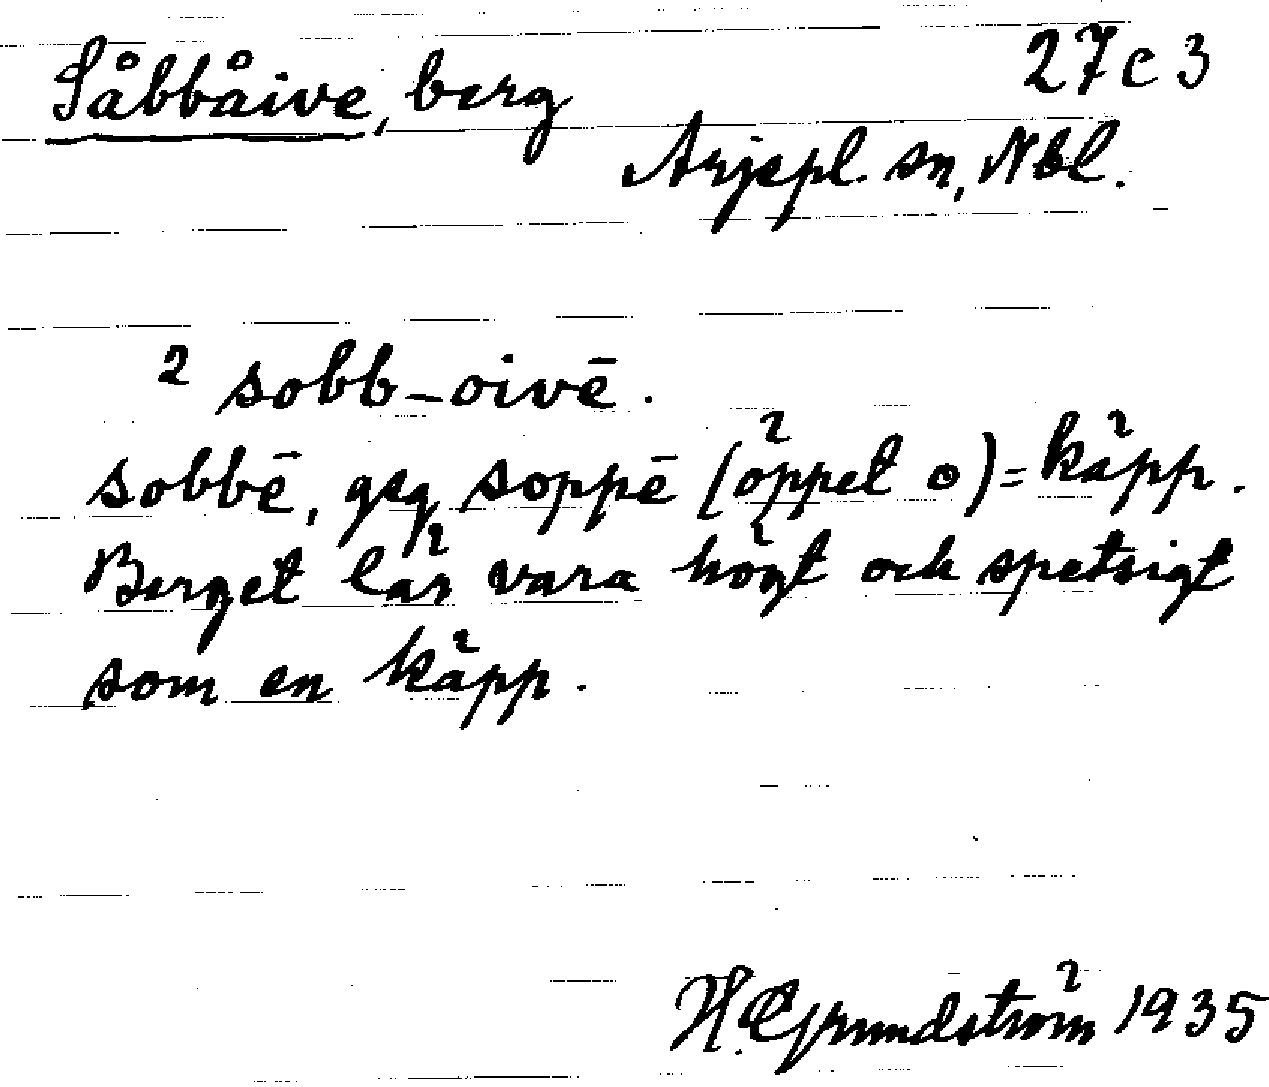 Såbbåive, berg 27c3
Arjepl. sn, Nbl.
² sobb-oivē.
sobbē, gsg soppē (öppet o) = käpp.
Berget lär vara högt och spetsigt
som en käpp.
H. Grundström 1935